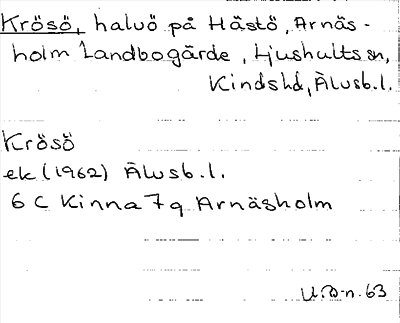 Krösö, halvö på Hästö, Arnäs-
holm Landbogärde, Ljushults sn,
Kinds hd, Älvsb. l.
Krösö
ek (1962) Älvsb. l.
6 C Kinna 7 g Arnäsholm
63